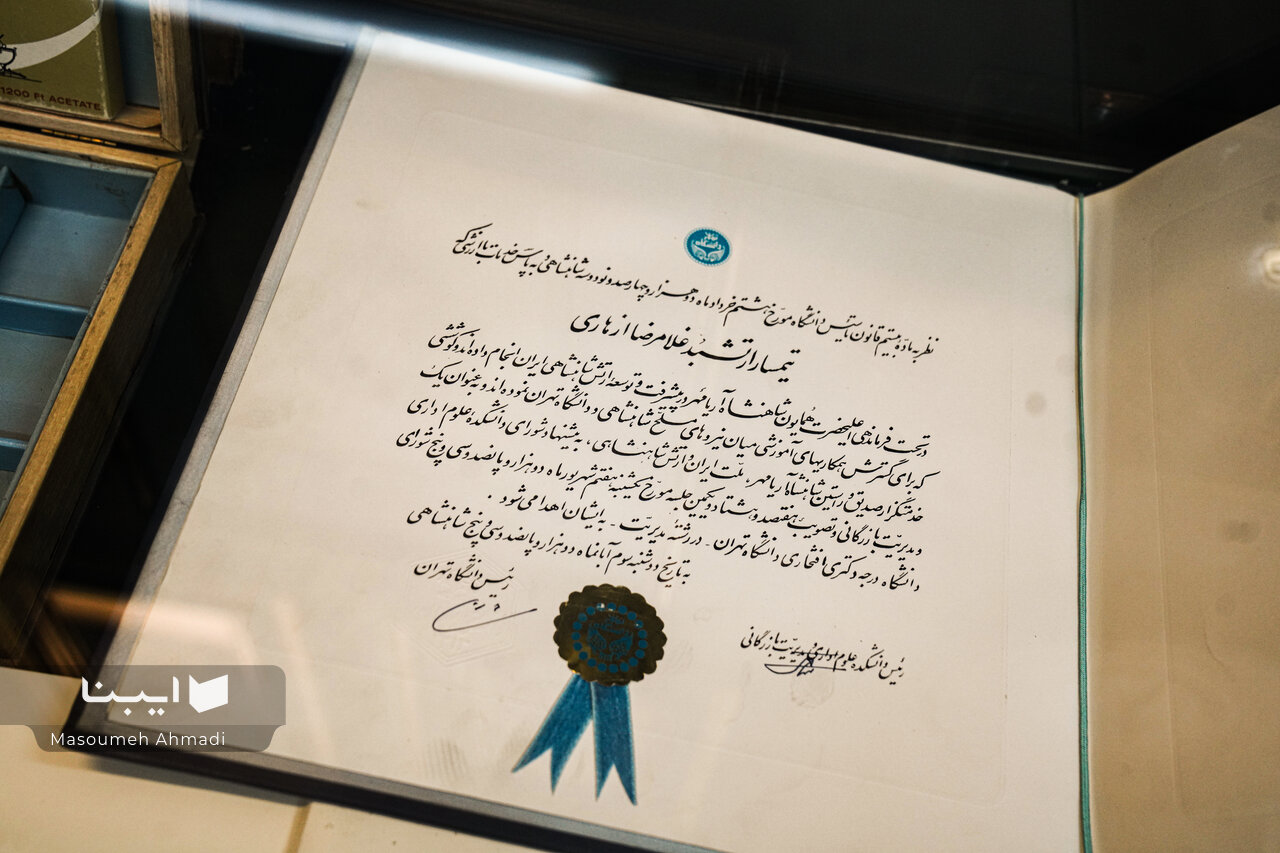 1200 Ft ACETATE
نظر به ماده بیستم قانون تأسیس دانشگاه مورخ هشتم خرداد ماه دو هزار و چهارصد و نود و سه شاهنشاهی و به پاس خدمات با ارزشی که
تیمسار ارتشبد غلامرضا ازهاری
در تحت فرماندهی اعلیحضرت همایون شاهنشاه آریامهر در پیشرفت و توسعه ارتش شاهنشاهی ایران انجام داده اند و کوششی
که برای گسترش همکاریهای آموزشی میان نیروهای مسلح شاهنشاهی و دانشگاه تهران نموده اند و به عنوان یک
خدمتگزار صدیق و راستین شاهنشاه آریامهر، ملت ایران و ارتش شاهنشاهی، به پیشنهاد شورای دانشکده علوم اداری
و مدیریت بازرگانی و تصویب هفتصد و هشتاد و یکمین جلسه مورخ یکشنبه هفتم شهریور ماه دو هزار و پانصد و سی و پنج شورای
دانشگاه درجه دکتری افتخاری دانشگاه تهران - در رشته مدیریت - به ایشان اهدا می شود.
به تاریخ دوشنبه سوم آبانماه دو هزار و پانصد و سی و پنج شاهنشاهی
رئیس دانشگاه تهران
رئیس دانشکده علوم اداری و مدیریت بازرگانی
ایبنا
Masoumeh Ahmadi